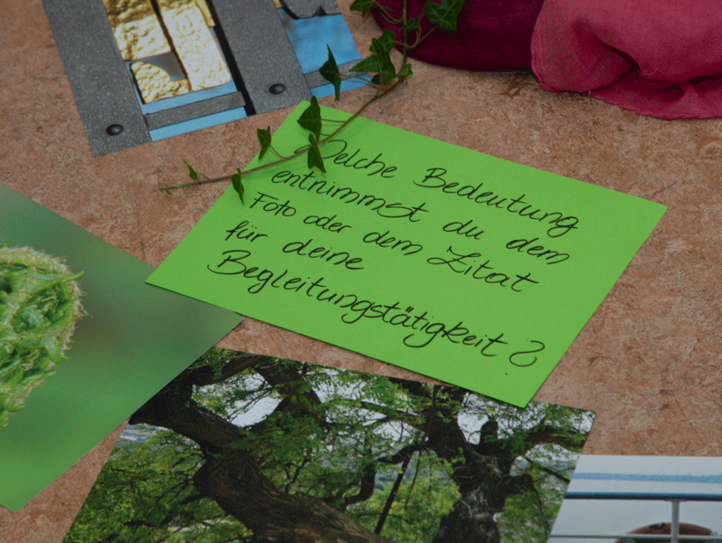 Welche Bedeutung
entnimmst du dem
Foto oder dem Zitat
für deine
Begleitungstätigkeit?